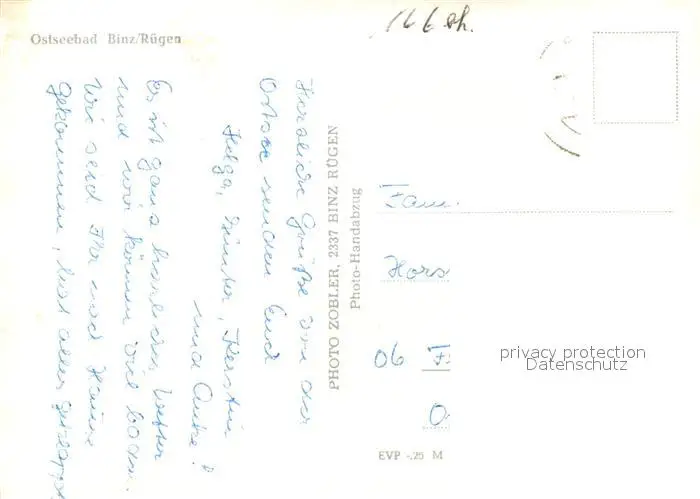 Ostseebad Binz/Rügen
166 sh.
Herzliche Grüße von der
Ostsee senden Euch
Helga, Günter, Kerstin
und Anke!
Es ist ganz herrliches Wetter
und wir können viel baden.
Wie seid Ihr nach Hause
gekommen, hat alles geklappt.
PHOTO ZOBLER, 2337 BINZ RÜGEN
Photo-Handabzug
Fam.
Hors
06 F
O
privacy protection
Datenschutz
EVP -.25 M